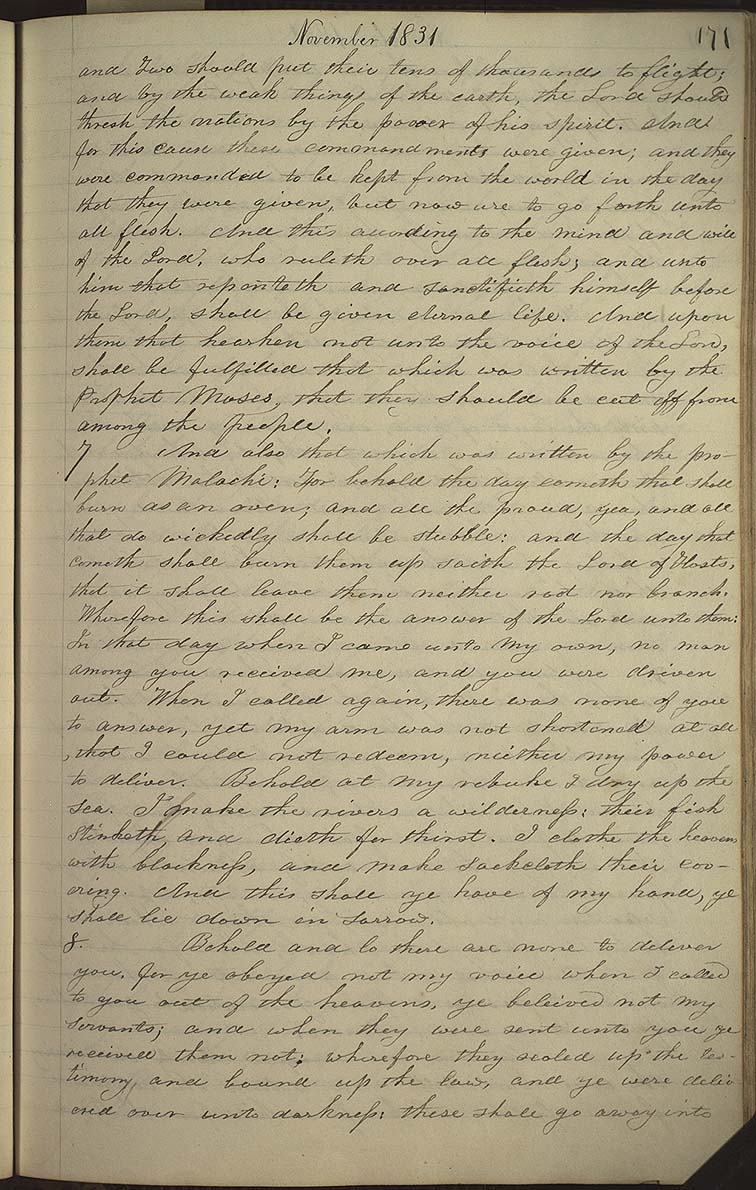 November 1831 171
and two should put their tens of thousands to flight;
and by the weak things of the earth, the Lord should
thresh the nations by the power of his spirit. And
for this cause these commandments were given; and they
were commanded to be kept from the world in the day
that they were given, but now are to go forth unto
all flesh. And this according to the mind and will
of the Lord, who ruleth over all flesh; and unto
him that repenteth and sanctifieth himself before
the Lord, shall be given eternal life. And upon
them that hearken not unto the voice of the Lord,
shall be fulfilled that which was written by the
Prophet Moses, that they should be cut off from
among the people.
7 And also that which was written by the pro-
phet Malachi: For behold the day cometh that shall
burn as an oven; and all the proud, yea, and all
that do wickedly shall be stubble: and the day that
cometh shall burn them up saith the Lord of Hosts,
that it shall leave them neither root nor branch.
Wherefore this shall be the answer of the Lord unto them:
In that day when I came unto my own, no man
among you received me, and you were driven
out. When I called again, there was none of you
to answer, yet my arm was not shortened at all
, that I could not redeem, neither my power
to deliver. Behold at my rebuke I dry up the
sea. I make the rivers a wilderness: their fish
stinketh, and dieth for thirst. I clothe the heavens
with blackness, and make sackcloth their cov-
ering. And this shall ye have of my hand, ye
shall lie down in sorrow.
8. Behold and lo there are none to deliver
you, for ye obeyed not my voice when I called
to you out of the heavens, ye believed not my
servants; and when they were sent unto you ye
received them not: wherefore they sealed up the tes-
timony, and bound up the law, and ye were deliv-
ered over unto darkness: these shall go away into